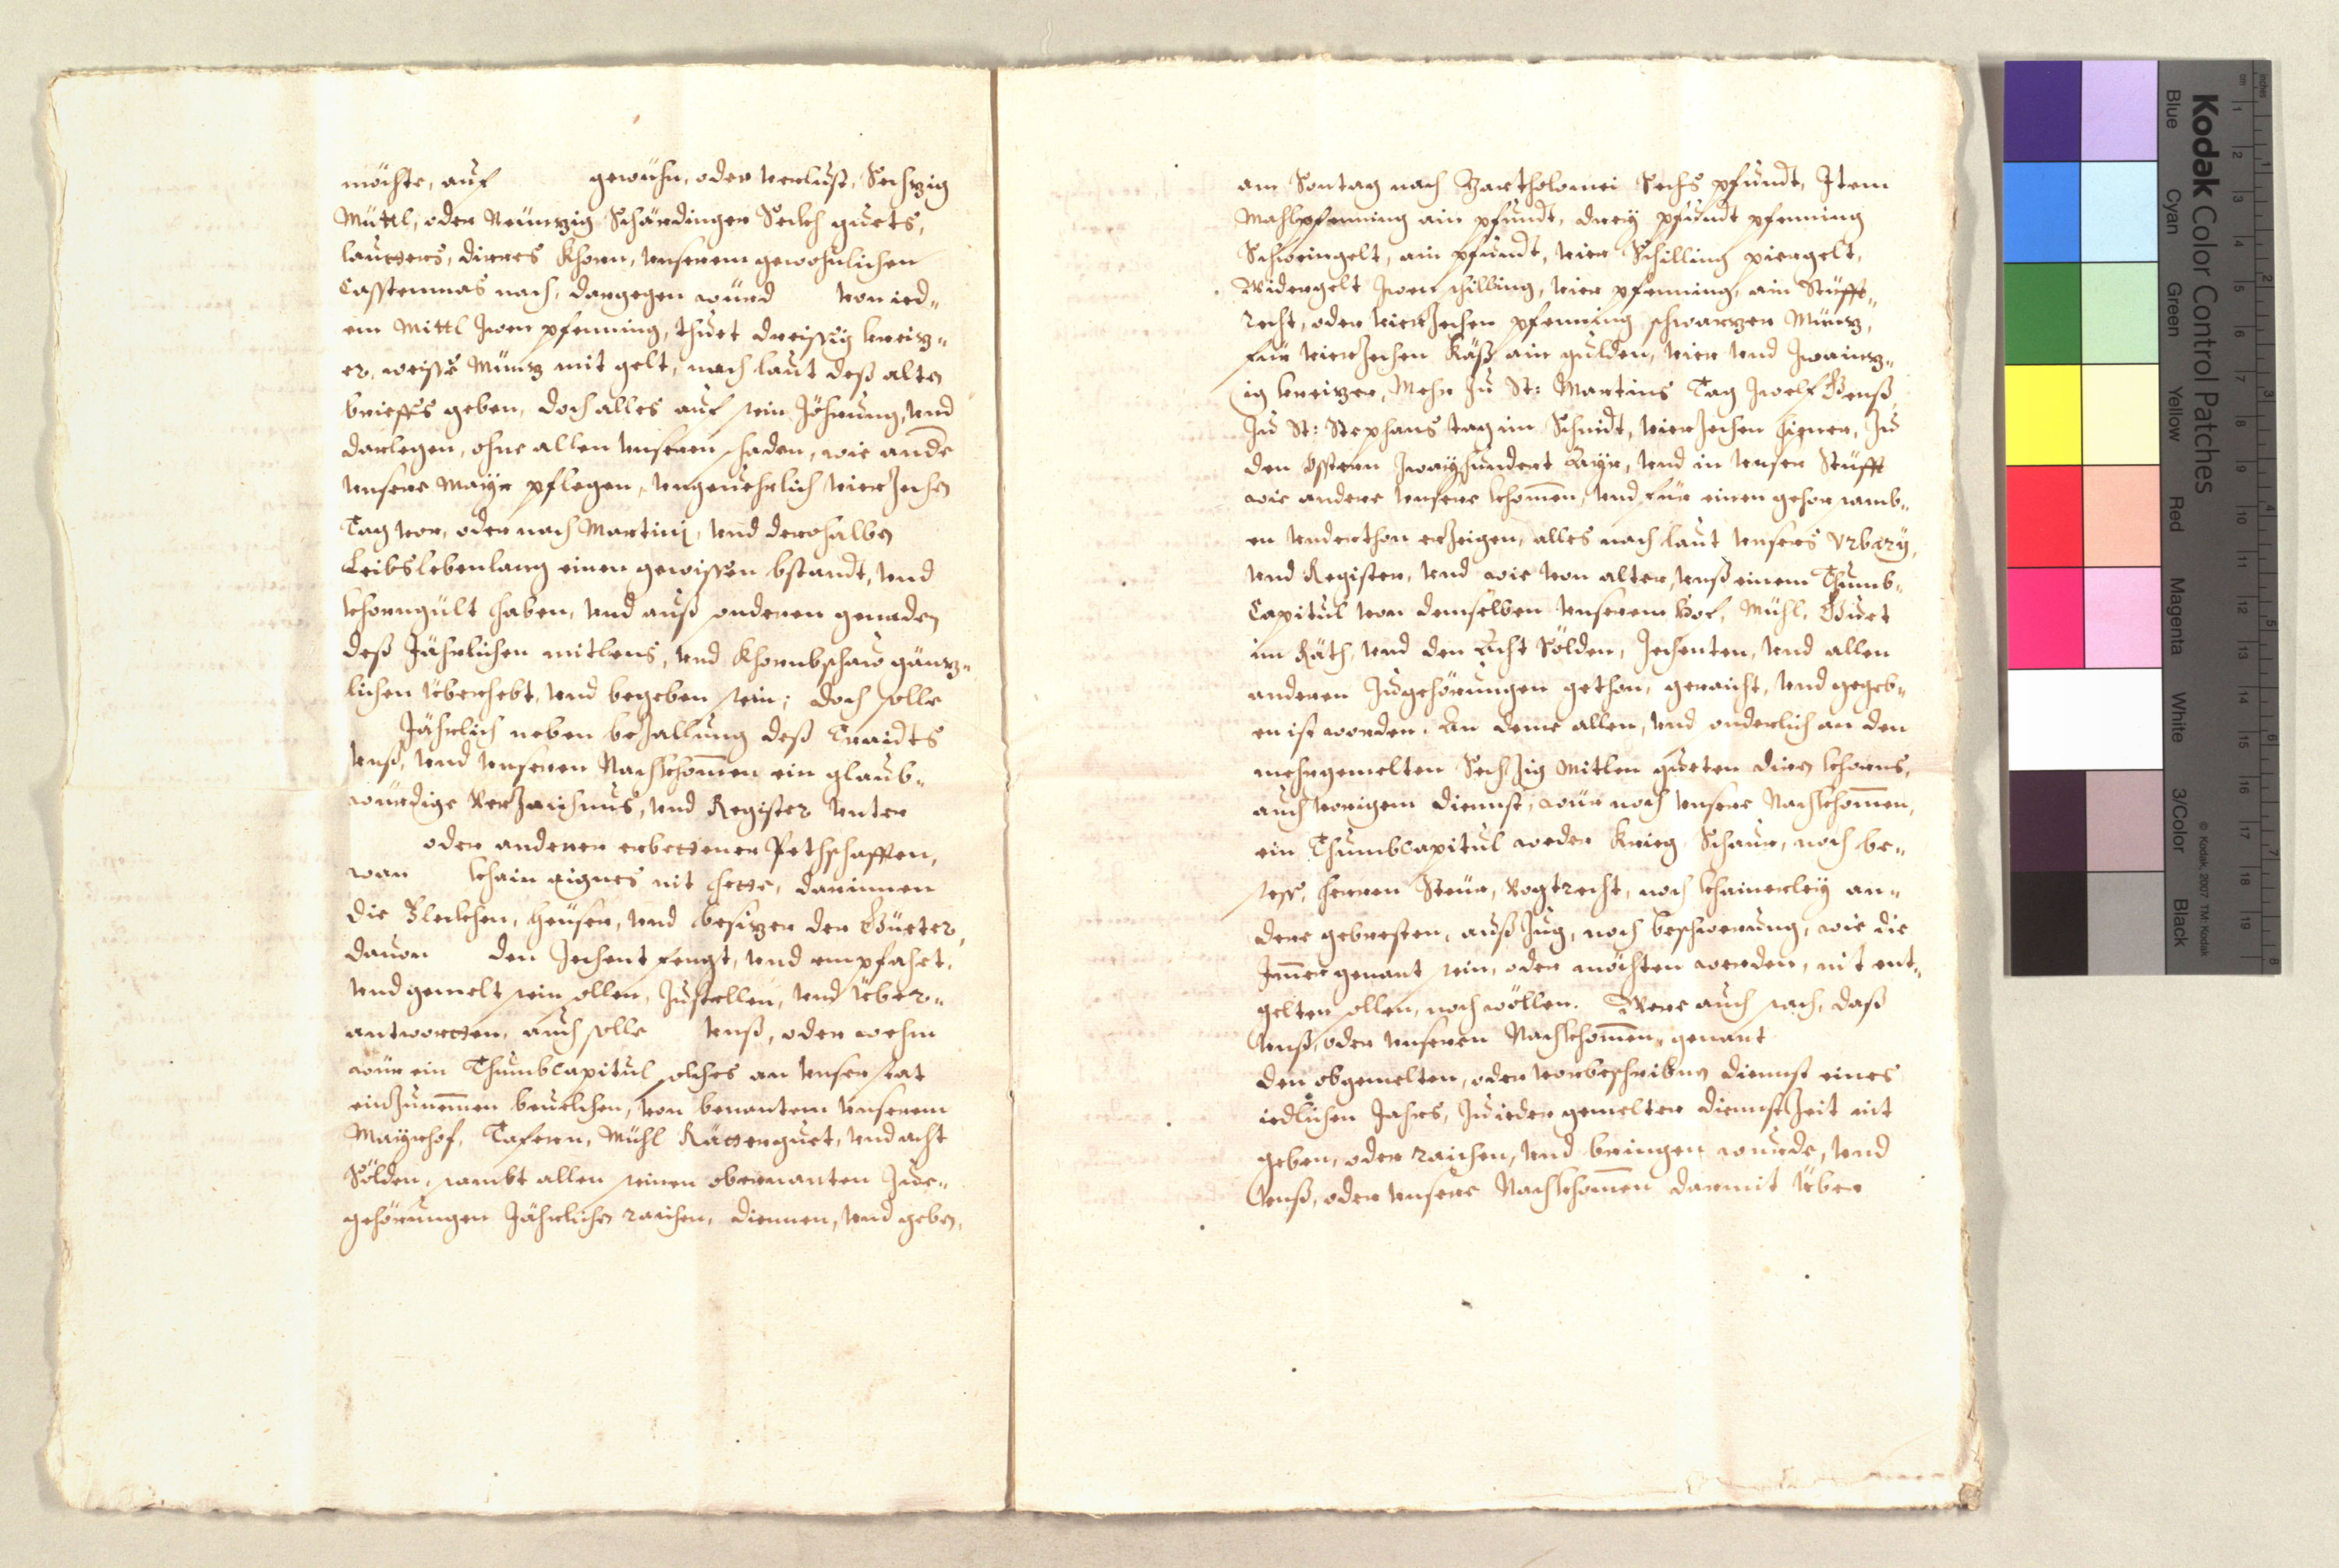 möchte, auf gewühn, oder verlust, Sechzig
Müttl, oder Neünzig Schärdinger Sekh guets,
lautters, dirres Khorn, unserem gewohnlichen
Casstenmas nach, dargegen würd von ied„
em Mittl zwen pfenning, thuet dreissig kreiz„
er, weisse Münz mit gelt, nach laut deß alten
brieffs geben, doch alles auf sein zöhrung, und
darlegen, ohne allen unseren schaden, wie andere
unsere Mayr pflegen, ungeuehrlich vierzechen
Tag vor, oder nach Martinj, und derohalben
Leibslebenlang einen gewissen bstandt, und
khorngült haben, und auß sonderen genaden
deß Jährlichen mitlens, und khornbschaw gänz„
lichen überhebt, und begeben sein; doch solle
Jährlich neben bezallung deß Traidts
unß, und unseren Nachkhommen ein glaub„
würdige Verzaichnus, und Register unter
oder anderer erbettener Petschafften,
wan khain aignes nit hette, darinnen
die Flekhen, heüser, und besizer der Güeter,
dauon den Zechent fengt, und empfahet,
und gemelt sein sollen, zustellen, und über„
antwortten, auch solle unß, oder wehm
wür ein Thumbcapitul solches an unser stat
einzunemmen beuelchen, von benantem unserem
Mayrhof, Tafern, Mühl Rättenguet, und acht
Sölden, sambt allen seinen obernanten Zue„
gehörungen Jährlichen raichen, diennen, und geben,
am Sontag nach Bartholomei Sechs pfundt, Item
Mahlpfenning ain pfundt, drey pfundt pfenning
Schweingelt, ain pfundt, vier Schilling piergelt,
Widergelt zwen schilling, vier pfenning, ain Stüfft„
recht, oder vierzechen pfenning schwarzer Münz,
für vierzechen Käß ain gulden, vier und zwainz„
ig kreizer, Mehr zu St: Martins Tag zwelf Genß,
zu St: Stephans tag im Schnidt, vierzechen hiener, zu
den Osstern zwayhundert Ayr, und in unser Stüfft
wie andere unsere khommen, und für einen gehorsamb„
en underthon erzeigen, alles nach laut unsers Urbary,
und Register, und wie von alter, unß einem Thumb„
Capitul von demselben unserem Hof, Mühl, Guet
im Räth, und den Acht Sölden, Zechenten, und allen
anderen zugehörungen gethon, geraicht, und gegeb„
en ist worden. An deme allen, und sonderlich an den
mehrgemelten Sechzig Mitlen gueten diren khorns,
auch vorigem diennst, wür noch unsere Nachkhommen,
ein Thumbcapitul weder Krieg, Schaur, noch be„
sess, herren Steür, Vogtrecht, noch khainerley an„
dere gebresten, auß Zug, noch beschwerung, wie die
Immer genant sein, oder möchten werden, nit ent„
gelten sollen, noch wöllen. Were auch sach, daß
unß, oder unseren Nachkhommen, genant
den obgemelten, oder vorbeschribnen diennst eines
iedlichen Jahrs, zu ieder gemelter diennst Zeit nit
geben, oder raichen, und bringen wurde, und
unß, oder unsere Nachkhommen darmit über
Kodak Color Control Patches
Blue Cyan Green Yellow Red Magenta White 3/Color Black
© Kodak 2007 TM: Kodak
cm 1 2 3 4 5 6 7 8 9 10 11 12 13 14 15 16 17 18 19
inches 1 2 3 4 5 6 7 8